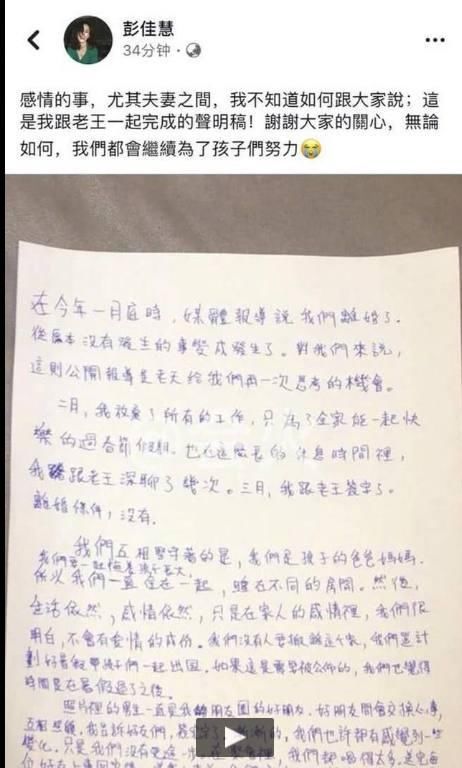 彭佳慧
34分钟
感情的事，尤其夫妻之間，我不知道如何跟大家說；這
是我跟老王一起完成的聲明稿！謝謝大家的關心，無論
如何，我們都會繼續為了孩子們努力😭
在今年一月底時，媒體報導說我們離婚了.
從原本沒有發生的事變成發生了。對我們來說，
這則公開報導是老天給我們再一次思考的機會。
二月，我放棄了所有的工作，只為了全家能一起快
樂的過春節假期. 也在這漫長的休息時間裡，
我跟老王深聊了幾次。三月，我跟老王簽字了。
離婚條件，沒有.
我們互相堅守著的是，我們是孩子的爸爸媽媽.
我們要一起陪著孩子長大，
所以我們一直住在一起，睡在不同的房間。然後，
生活依然，感情依然，只是在家人的感情裡，我們很
明白，不會有愛情的成份。我們沒有人要撤離這个家，我們是計
劃好暑假帶孩子們一起出国. 如果這是需要被公佈的，我們也覺得
時間是在暑假過了之後.
照片裡的男生一直是我的朋友圈的好朋友. 好朋友間會交換心事，
互相照顧. 我告訴好友們，我簽字了. 漸漸的，我們也許都有感覺到一些
變化. 只是我們沒有更進一步. 在聚會裡，我們都喝